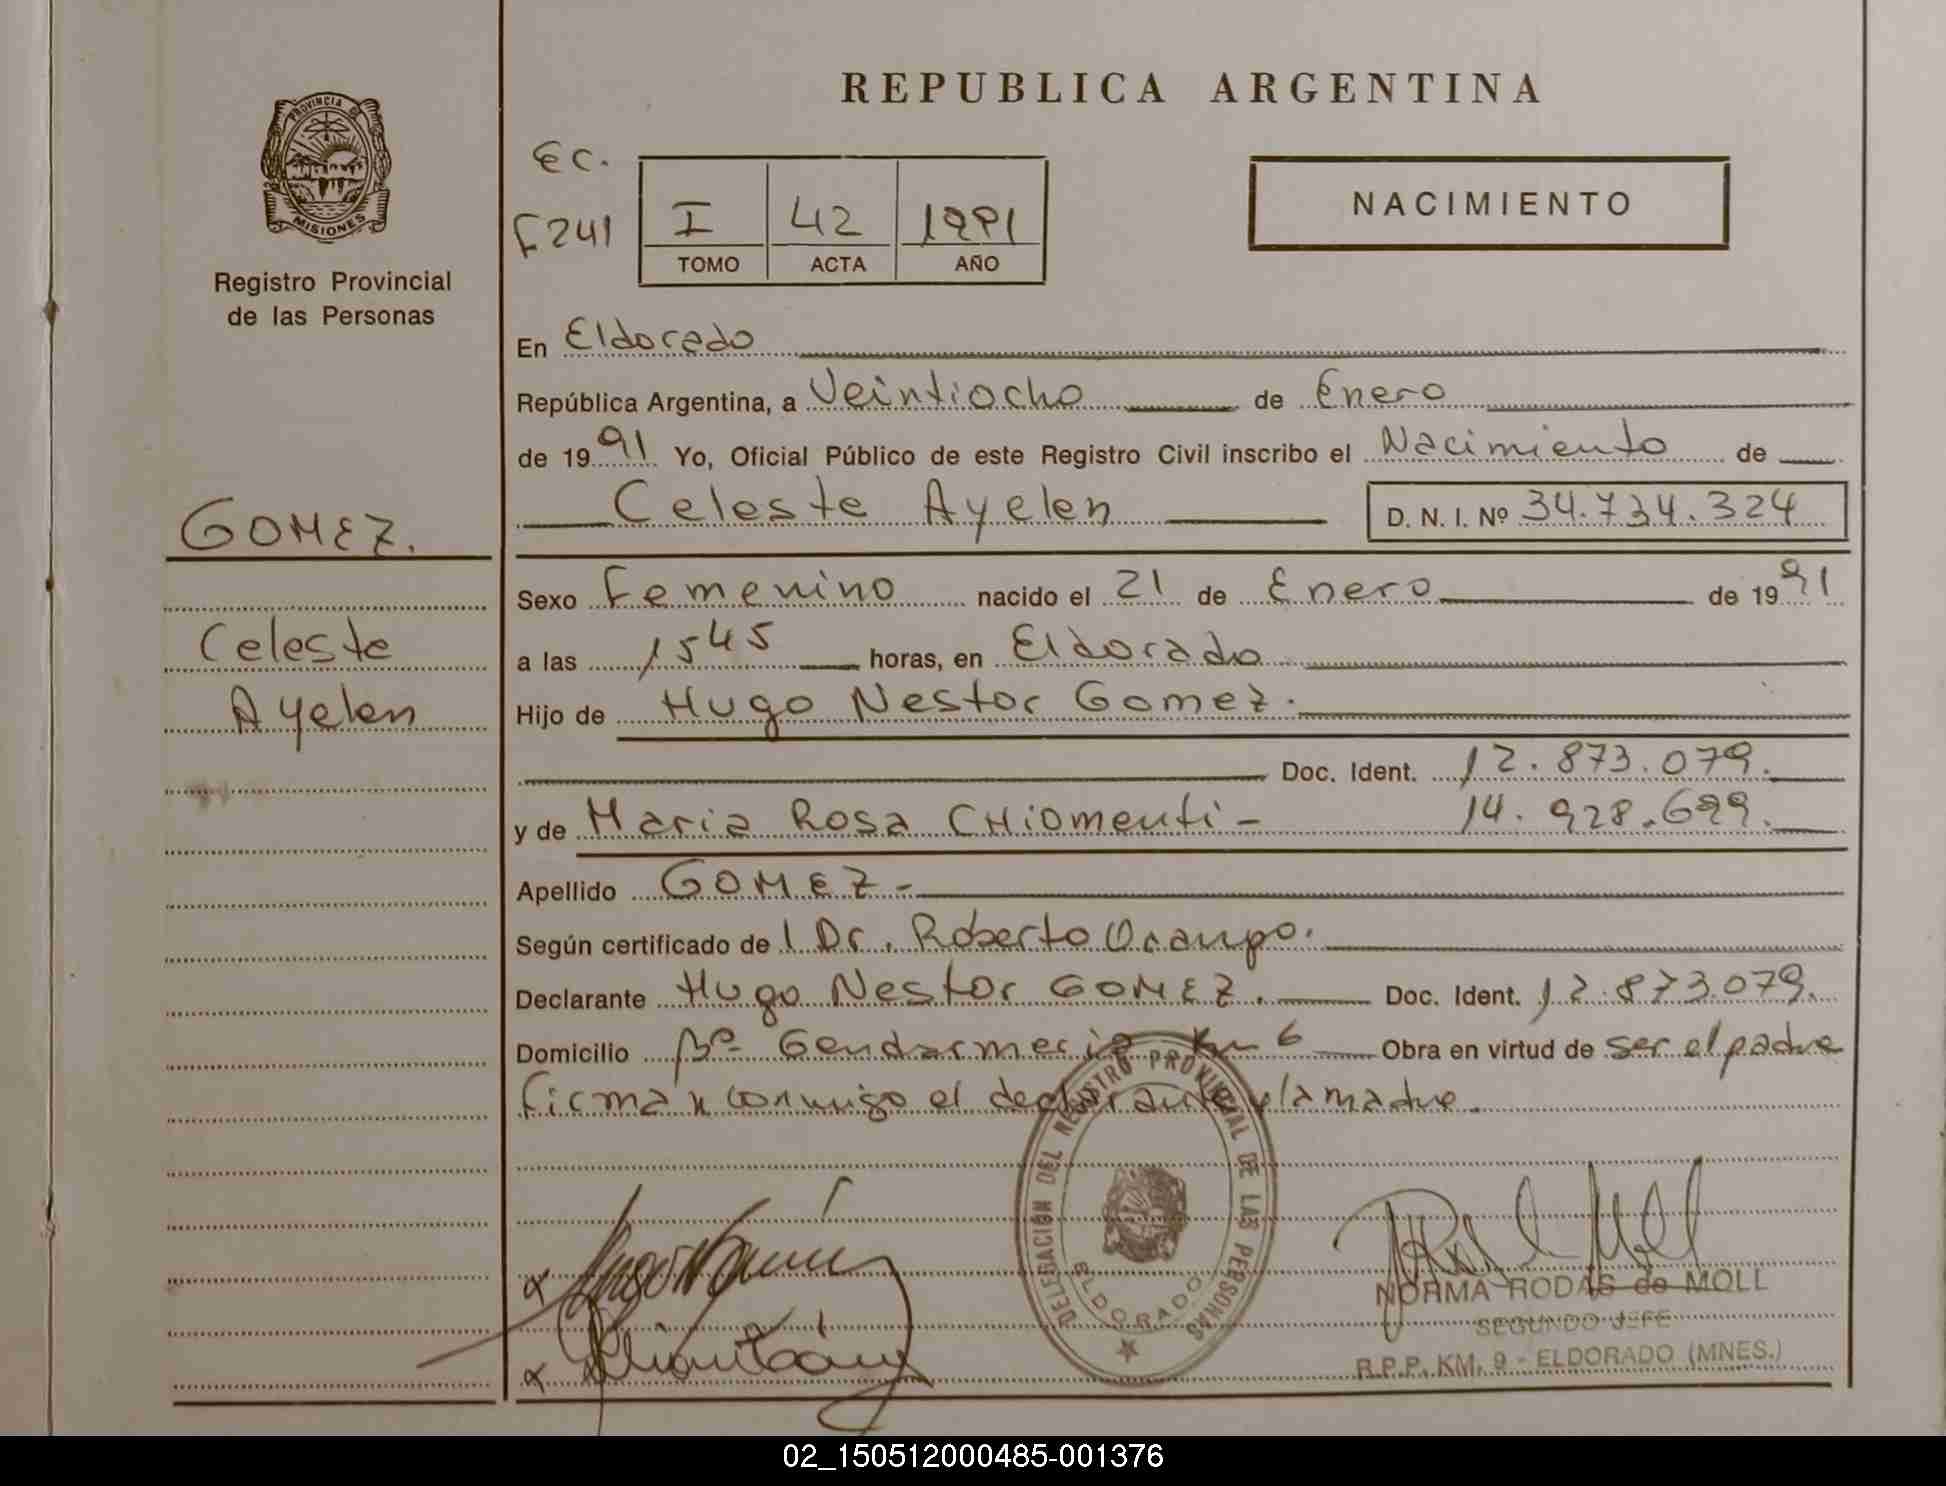 REPUBLICA ARGENTINA
PROVINCIA DE
MISIONES
Registro Provincial
de las Personas
EC.
F241
I 42 1991
TOMO ACTA AÑO
NACIMIENTO
En Eldorado
República Argentina, a Veintiocho de Enero
de 1991 Yo, Oficial Público de este Registro Civil inscribo el Nacimiento de
Celeste Ayelen D. N. I. Nº 34.734.324
GOMEZ.
Celeste
Ayelen
Sexo Femenino nacido el 21 de Enero de 1991
a las 1545 horas, en Eldorado
Hijo de Hugo Nestor Gomez.
Doc. Ident. 12.873.079.
y de Maria Rosa CHiomenti - 14.928.699.
Apellido GOMEZ-
Según certificado de l Dr. Roberto Ocampo.
Declarante Hugo Nestor GOMEZ. Doc. Ident. 12.873.079.
Domicilio Bº Gendarmeria Km 6 Obra en virtud de ser el padre
firman conmigo el declarante y la madre.
DELEGACIÓN DEL REGISTRO PROVINCIAL DE LAS PERSONAS
ELDORADO
NORMA RODAS de MOLL
SEGUNDO JEFE
R.P.P. KM. 9 - ELDORADO (MNES.)
02_150512000485-001376